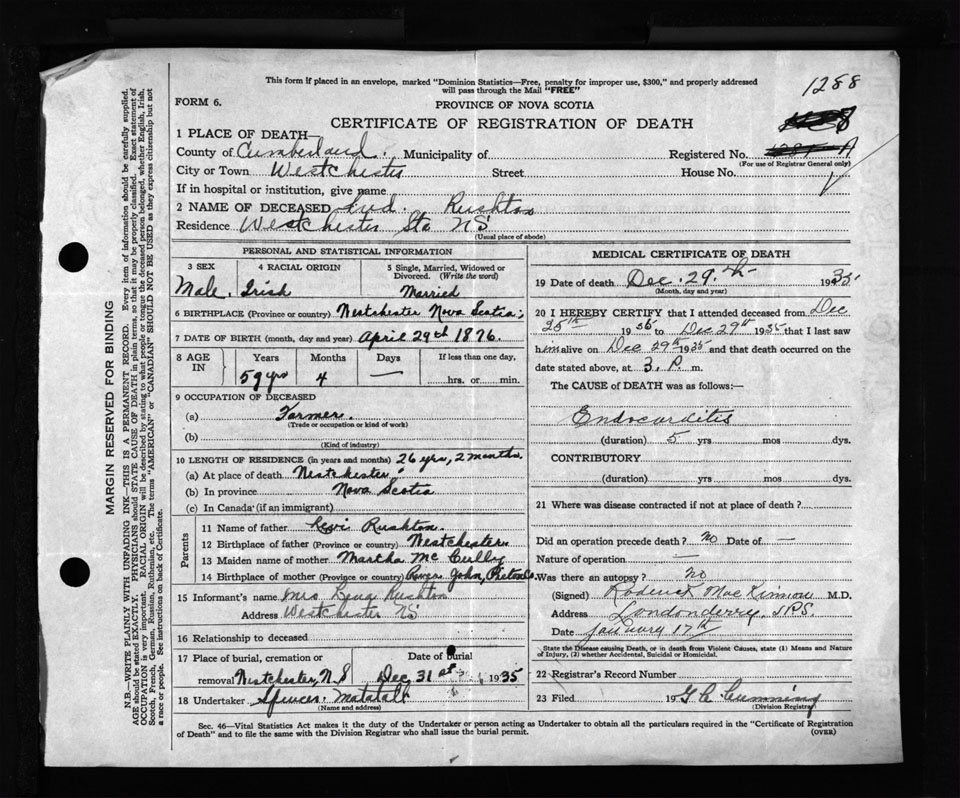 This form if placed in an envelope, marked "Dominion Statistics—Free, penalty for improper use, $300," and properly addressed
will pass through the Mail "FREE"
1288
FORM 6.
PROVINCE OF NOVA SCOTIA
CERTIFICATE OF REGISTRATION OF DEATH
1 PLACE OF DEATH—
County of Cumberland. Municipality of
Registered No.
(For use of Registrar General only)
City or Town Westchester Street House No.
If in hospital or institution, give name
2 NAME OF DECEASED Rushton
Residence Westchester Sta NS
(Usual place of abode)
PERSONAL AND STATISTICAL INFORMATION
3 SEX 4 RACIAL ORIGIN 5 Single, Married, Widowed or
Divorced. (Write the word)
Male. Irish Married
6 BIRTHPLACE (Province or country) Westchester Nova Scotia;
7 DATE OF BIRTH (month, day and year) April 29th 1876.
8 AGE IN Years Months Days If less than one day,
59 yrs 4 — hrs. or min.
9 OCCUPATION OF DECEASED
(a) Farmer.
(Trade or occupation or kind of work)
(b)
(Kind of industry)
10 LENGTH OF RESIDENCE (in years and months) 26 yrs, 2 months.
(a) At place of death Westchester
(b) In province Nova Scotia
(c) In Canada (if an immigrant)
Parents
11 Name of father Levi Rushton
12 Birthplace of father (Province or country) Westchester
13 Maiden name of mother Martha McCully
14 Birthplace of mother (Province or country) River John, Pictou Co.
15 Informant's name Mrs Rushton
Address Westchester NS
16 Relationship to deceased
17 Place of burial, cremation or Date of burial
removal Westchester, N.S Dec 31st 1935
18 Undertaker Spencer
(Name and address)
MEDICAL CERTIFICATE OF DEATH
19 Date of death Dec. 29.th 1935.
(Month, day and year)
20 I HEREBY CERTIFY that I attended deceased from Dec
25th 1935 to Dec 29th 1935 that I last saw
him alive on Dec 29th 1935 and that death occurred on the
date stated above, at 3. P. m.
The CAUSE OF DEATH was as follows:—
Endocarditis
(duration) 5 yrs mos dys.
CONTRIBUTORY
(duration) yrs mos dys.
21 Where was disease contracted if not at place of death?
Did an operation precede death? no Date of —
Nature of operation —
Was there an autopsy? no
(Signed) Roderick MacKinnon M.D.
Address Londonderry, N.S.
Date January 17th
State the Disease causing Death, or in death from Violent Causes, state (1) Means and Nature
of Injury, (2) whether Accidental, Suicidal or Homicidal.
22 Registrar's Record Number
23 Filed 19 Cumming
(Division Registrar)
Sec. 46—Vital Statistics Act makes it the duty of the Undertaker or person acting as Undertaker to obtain all the particulars required in the "Certificate of Registration
of Death" and to file the same with the Division Registrar who shall issue the burial permit. (OVER)
MARGIN RESERVED FOR BINDING
N.B.—WRITE PLAINLY WITH UNFADING INK—THIS IS A PERMANENT RECORD. Every item of information should be carefully supplied.
AGE should be stated EXACTLY. PHYSICIANS should STATE CAUSE OF DEATH in plain terms, so that it may be properly classified. Exact statement of
OCCUPATION is very important. RACIAL ORIGIN will be described by stating to what people or tongue the deceased person belonged, whether English, Irish,
Scotch, French, German, Russian, Ruthenian, etc. The terms "AMERICAN" or "CANADIAN" SHOULD NOT BE USED as they express citizenship but not
a race or people. See instructions on back of Certificate.